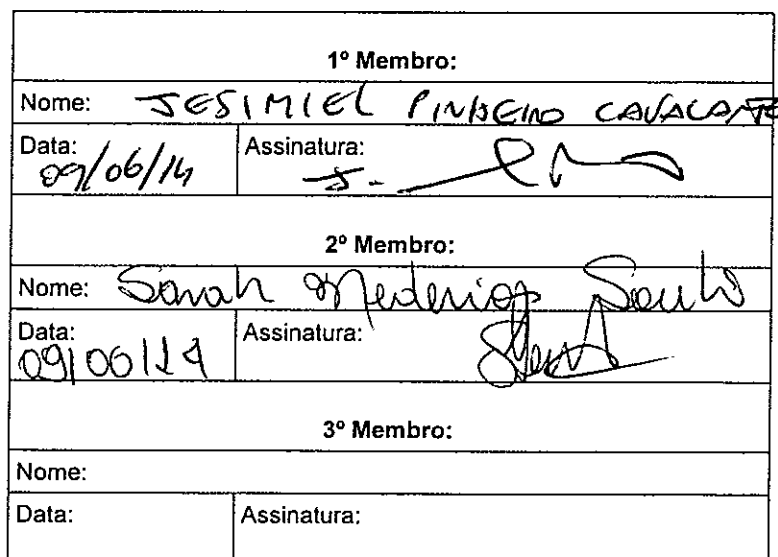 1º Membro:
Nome: JESIMIEL PINHEIRO CAVALCANTE
Data: Assinatura:
09/06/14
2º Membro:
Nome: Sarah Medeiros Souto
Data: Assinatura:
09/06/14
3º Membro:
Nome:
Data: Assinatura: